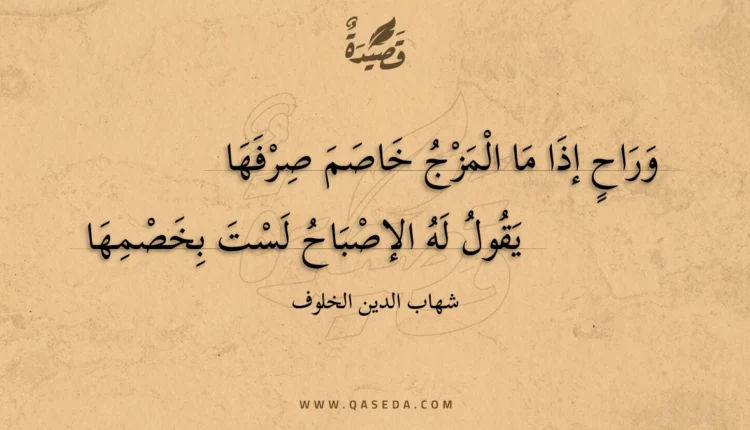 قَصِيدَةٌ
وَرَاحٍ إذَا مَا الْمَزْجُ خَاصَمَ صِرْفَهَا
يَقُولُ لَهُ الإصْبَاحُ لَسْتَ بِخَصْمِهَا
شهاب الدين الخلوف
WWW.QASEDA.COM